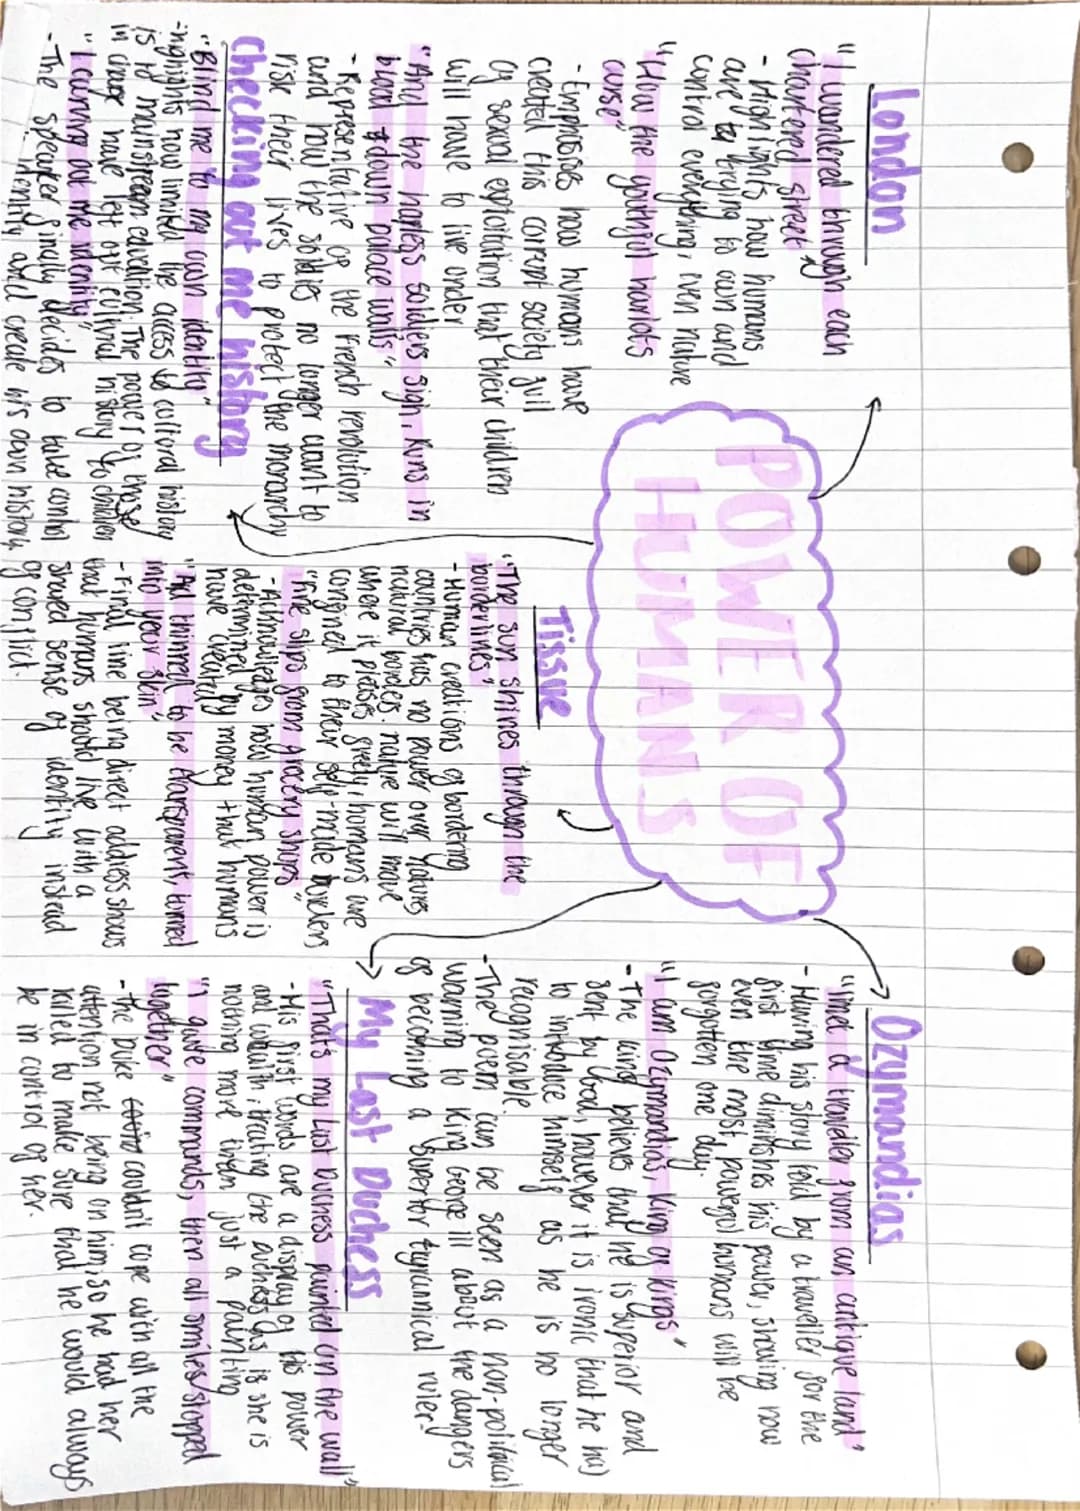 POWER OF
HUMANS
London
"I wandered through each
chartered street"
- Highlights how humans
are trying to own and
control everything, even nature
"How the youthful harlots
curse"
- Emphasises how humans have
created this corrupt society full
of sexual exploitation that their children
will have to live under
"And the hapless soldiers sigh, Runs in
blood down palace walls"
- Representative of the French revolution
and how the soldiers no longer want to
risk their lives to protect the monarchy
Checking out me history
"Blind me to my own identity"
- highlights how limited the access to cultural history
is in mainstream education. The power of those
in charge have left out cultural history to children
"I carving out me identity"
- The speaker finally decides to take control
identity and create his own history
Tissue
"The sun shines through the
borderlines"
- Human creations of bordering
countries has no power over natures
natural borders. nature will move
where it pleases freely, humans are
confined to their self-made borders
"Fine slips from grocery shops"
- Acknowledges how human power is
determined by money that humans
have created
"And thinned to be transparent, turned
into your skin"
- Final line being direct address shows
that humans should live with a
shared sense of identity instead
of conflict.
Ozymandias
"I met a traveller from an antique land"
- Having his story told by a traveller for the
first time diminishes his power, showing how
even the most powerful humans will be
forgotten one day.
"I am Ozymandias, King of Kings"
- The king believes that he is superior and
sent by God, however it is ironic that he has
to introduce himself as he is no longer
recognisable.
- The poem can be seen as a non-political
warning to King George III about the dangers
of becoming a superior tyrannical ruler.
My Last Duchess
"That's my last Duchess painted on the wall"
- His first words are a display of his power
and wealth, treating the duchess as is she is
nothing more then just a painting
"I gave commands, then all smiles stopped
together"
- the Duke couldn't cope with all the
attention not being on him, so he had her
killed to make sure that he would always
be in control of her.